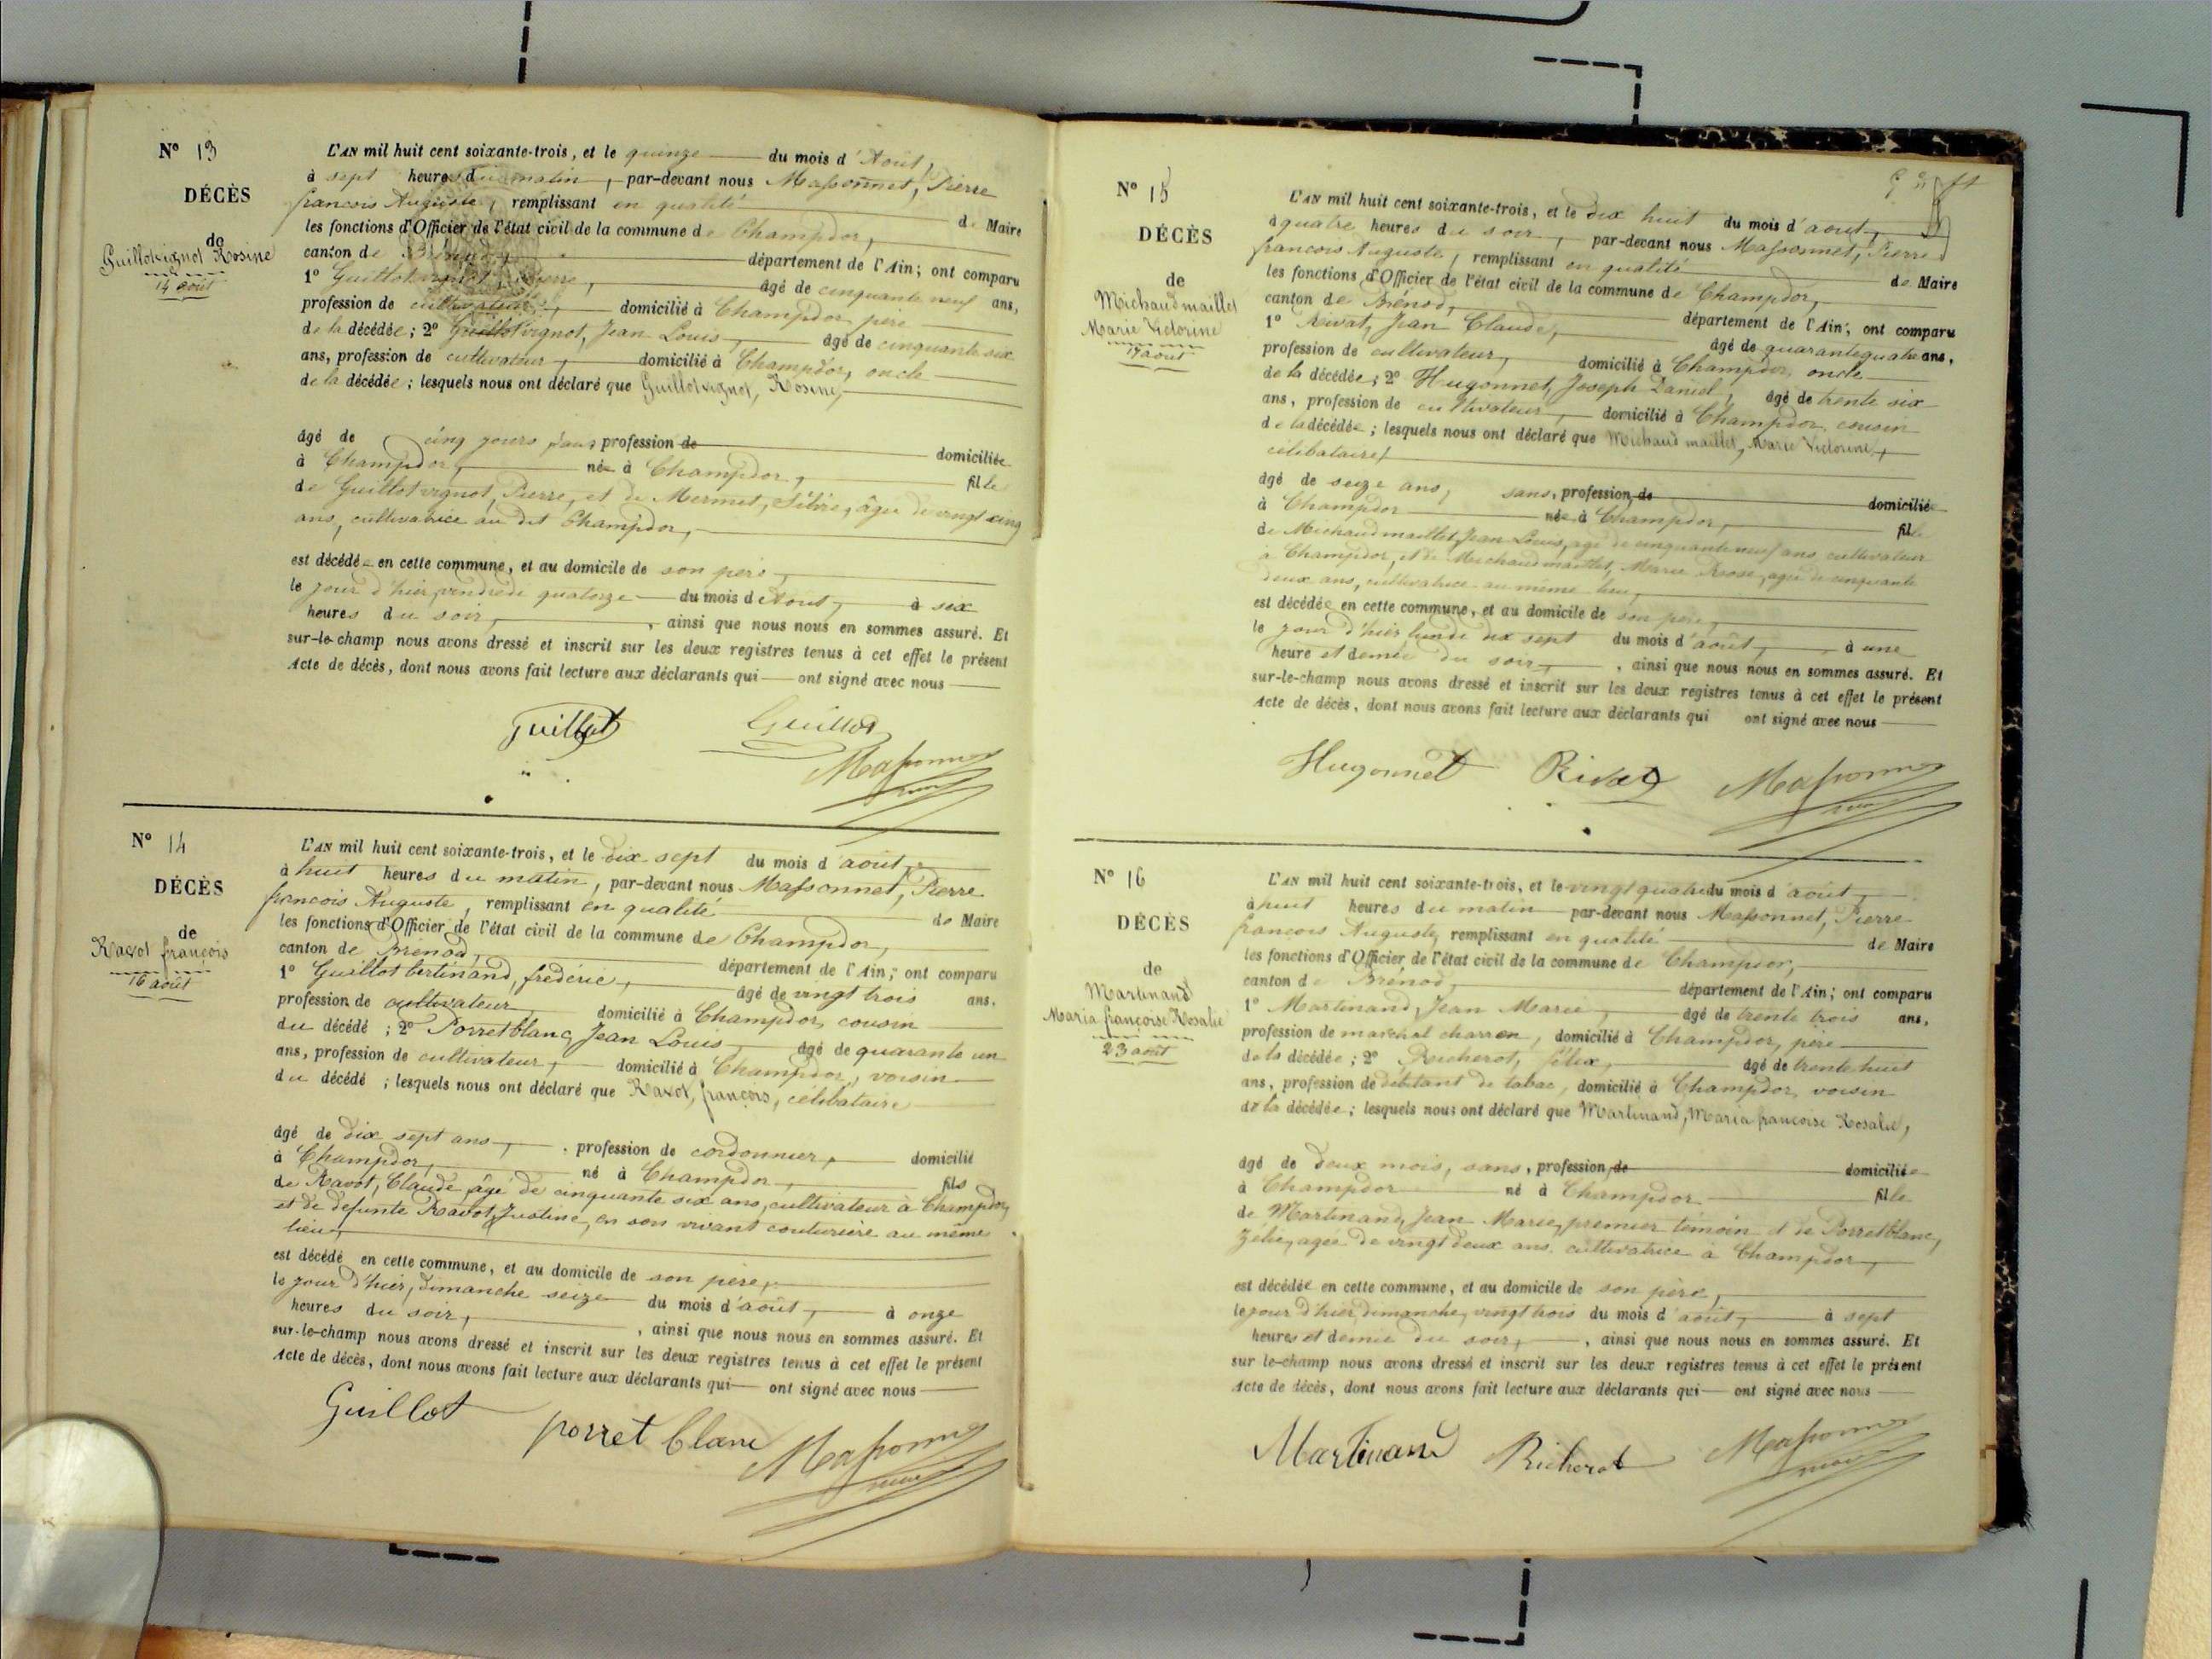 N° 13
DÉCÈS
de
Guillotvignot Rosine
14 août
L'AN mil huit cent soixante-trois, et le quinze du mois d'Août,
à sept heures du matin, par-devant nous Massonnet, Pierre
francois Auguste, remplissant en qualité de Maire
les fonctions d'Officier de l'état civil de la commune de Champdor,
canton de Brénod, département de l'Ain; ont comparu
1° Guillotvignot, Pierre, âgé de cinquante neuf ans,
profession de cultivateur, domicilié à Champdor père
de la décédée; 2° Guillotvignot, Jean Louis, âgé de cinquante six
ans, profession de cultivateur, domicilié à Champdor, oncle
de la décédée; lesquels nous ont déclaré que Guillotvignot, Rosine,
âgé de cinq jours sans profession de domiciliée
à Champdor, née à Champdor, fille
de Guillotvignot, Pierre, et de Mermet, âgée de vingt cinq
ans, cultivatrice au dit Champdor,
est décédée en cette commune, et au domicile de son père,
le jour d'hier, vendredi quatorze du mois d'Août, à six
heures du soir, ainsi que nous nous en sommes assuré. Et
sur-le-champ nous avons dressé et inscrit sur les deux registres tenus à cet effet le présent
Acte de décès, dont nous avons fait lecture aux déclarants qui ont signé avec nous
Guillot Guillot
Massonnet
N° 14
DÉCÈS
de
Ravot françois
16 août
L'AN mil huit cent soixante-trois, et le dix sept du mois d'août,
à huit heures du matin, par-devant nous Massonnet, Pierre
francois Auguste, remplissant en qualité de Maire
les fonctions d'Officier de l'état civil de la commune de Champdor,
canton de Brénod, département de l'Ain; ont comparu
1° Guillot bertinand, frédéric, âgé de vingt trois ans,
profession de cultivateur domicilié à Champdor, cousin
du décédé; 2° Porretblanc, Jean Louis, âgé de quarante un
ans, profession de cultivateur, domicilié à Champdor, voisin
du décédé; lesquels nous ont déclaré que Ravot, françois, célibataire
âgé de dix sept ans, profession de cordonnier, domicilié
à Champdor, né à Champdor, fils
de Ravot, Claude, âgé de cinquante six ans, cultivateur à Champdor,
et de defunte Ravot, Justine, en son vivant couturière au même
lieu,
est décédé en cette commune, et au domicile de son père,
le jour d'hier, dimanche seize du mois d'août, à onze
heures du soir, ainsi que nous nous en sommes assuré. Et
sur-le-champ nous avons dressé et inscrit sur les deux registres tenus à cet effet le présent
Acte de décès, dont nous avons fait lecture aux déclarants qui ont signé avec nous
Guillot porret blanc Massonnet
N° 15
DÉCÈS
de
Michaudmaillet
Marie Victorine
17 août
L'AN mil huit cent soixante-trois, et le dix huit du mois d'aout,
à quatre heures du soir, par-devant nous Massonnet, Pierre
francois Auguste, remplissant en qualité de Maire
les fonctions d'Officier de l'état civil de la commune de Champdor,
canton de Brénod, département de l'Ain; ont comparu
1° Rivat, Jean Claude, âgé de quarantequatre ans,
profession de cultivateur, domicilié à Champdor, oncle
de la décédée; 2° Hugonnet, Joseph Daniel, âgé de trente six
ans, profession de cultivateur, domicilié à Champdor cousin
de la décédée; lesquels nous ont déclaré que Michaud maillet, Marie Victorine,
célibataire,
âgé de seize ans, sans, profession de domiciliée
à Champdor née à Champdor, fille
de Michaudmaillet, Jean Louis, agé de cinquante neuf ans cultivateur
à Champdor, et de Michaudmaillet, Marie Rose, agée de cinquante
deux ans, cultivatrice au même lieu,
est décédée en cette commune, et au domicile de son père,
le jour d'hier lundi dix sept du mois d'août, à une
heure et demie du soir, ainsi que nous nous en sommes assuré. Et
sur-le-champ nous avons dressé et inscrit sur les deux registres tenus à cet effet le présent
Acte de décès, dont nous avons fait lecture aux déclarants qui ont signé avec nous
Hugonnet Rivat Massonnet
N° 16
DÉCÈS
de
Martinand
Maria françoise Rosalie
23 août
L'AN mil huit cent soixante-trois, et le vingt quatre du mois d'août,
à huit heures du matin par-devant nous Massonnet, Pierre
francois Auguste, remplissant en qualité de Maire
les fonctions d'Officier de l'état civil de la commune de Champdor,
canton de Brénod, département de l'Ain; ont comparu
1° Martinand, Jean Marie, âgé de trente trois ans,
profession de marchal charron, domicilié à Champdor, père
de la décédée; 2° Richerot, félix, âgé de trente huit
ans, profession de débitant de tabac, domicilié à Champdor, voisin
de la décédée; lesquels nous ont déclaré que Martinand, Maria françoise Rosalie,
âgé de deux mois, sans, profession de domiciliée
à Champdor né à Champdor fille
de Martinand, Jean Marie, premier témoin et de Porretblanc,
Zélie, agée de vingt deux ans cultivatrice à Champdor,
est décédée en cette commune, et au domicile de son père,
le jour d'hier, dimanche, vingt trois du mois d'août, à sept
heures et demie du soir, ainsi que nous nous en sommes assuré. Et
sur le-champ nous avons dressé et inscrit sur les deux registres tenus à cet effet le présent
Acte de décès, dont nous avons fait lecture aux déclarants qui ont signé avec nous
Martinand Richerot Massonnet